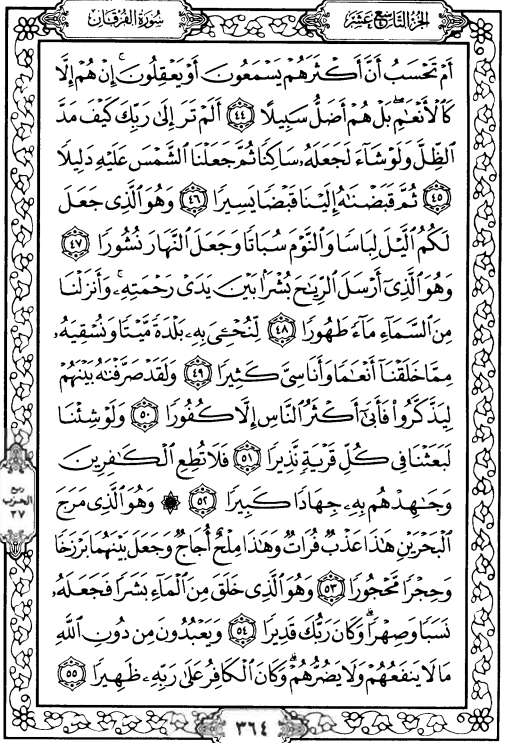 سورة الفرقان
الجزء التاسع عشر
أَمْ تَحْسَبُ أَنَّ أَكْثَرَهُمْ يَسْمَعُونَ أَوْ يَعْقِلُونَ ۚ إِنْ هُمْ إِلَّا
كَالْأَنْعَٰمِ ۖ بَلْ هُمْ أَضَلُّ سَبِيلًا ٤٤ أَلَمْ تَرَ إِلَىٰ رَبِّكَ كَيْفَ مَدَّ
الظِّلَّ وَلَوْ شَآءَ لَجَعَلَهُۥ سَاكِنًا ثُمَّ جَعَلْنَا الشَّمْسَ عَلَيْهِ دَلِيلًا
٤٥ ثُمَّ قَبَضْنَٰهُ إِلَيْنَا قَبْضًا يَسِيرًا ٤٦ وَهُوَ الَّذِى جَعَلَ
لَكُمُ الَّيْلَ لِبَاسًا وَالنَّوْمَ سُبَاتًا وَجَعَلَ النَّهَارَ نُشُورًا ٤٧
وَهُوَ الَّذِىٓ أَرْسَلَ الرِّيَٰحَ بُشْرًۢا بَيْنَ يَدَىْ رَحْمَتِهِۦ ۚ وَأَنزَلْنَا
مِنَ السَّمَآءِ مَآءً طَهُورًا ٤٨ لِّنُحْـِۧىَ بِهِۦ بَلْدَةً مَّيْتًا وَنُسْقِيَهُۥ
مِمَّا خَلَقْنَآ أَنْعَٰمًا وَأَنَاسِىَّ كَثِيرًا ٤٩ وَلَقَدْ صَرَّفْنَٰهُ بَيْنَهُمْ
لِيَذَّكَّرُوا۟ فَأَبَىٰٓ أَكْثَرُ النَّاسِ إِلَّا كُفُورًا ٥٠ وَلَوْ شِئْنَا
لَبَعَثْنَا فِى كُلِّ قَرْيَةٍ نَّذِيرًا ٥١ فَلَا تُطِعِ الْكَٰفِرِينَ
وَجَٰهِدْهُم بِهِۦ جِهَادًا كَبِيرًا ٥٢ ۞ وَهُوَ الَّذِى مَرَجَ
الْبَحْرَيْنِ هَٰذَا عَذْبٌ فُرَاتٌ وَهَٰذَا مِلْحٌ أُجَاجٌ وَجَعَلَ بَيْنَهُمَا بَرْزَخًا
وَحِجْرًا مَّحْجُورًا ٥٣ وَهُوَ الَّذِى خَلَقَ مِنَ الْمَآءِ بَشَرًا فَجَعَلَهُۥ
نَسَبًا وَصِهْرًا ۗ وَكَانَ رَبُّكَ قَدِيرًا ٥٤ وَيَعْبُدُونَ مِن دُونِ اللَّهِ
مَا لَا يَنفَعُهُمْ وَلَا يَضُرُّهُمْ ۗ وَكَانَ الْكَافِرُ عَلَىٰ رَبِّهِۦ ظَهِيرًا ٥٥
ربع
الحزب
٣٧
٣٦٤